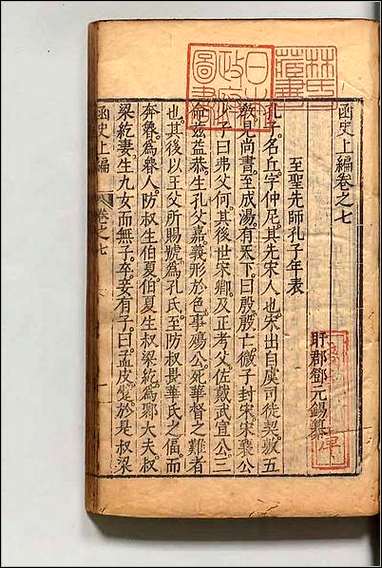 函史上編卷之七
盱郡鄧元錫纂
至聖先師孔子年表
孔子名丘字仲尼其先宋人也宋出自虞司徒契敷五
教見尚書至成湯有天下曰殷殷亡微子封宋宋襄公
生弗父何其後世宋卿及正考父佐戴武宣公三
命茲益恭生孔父嘉義形於色事殤公死華督之難者
也其後以王父所賜號為孔氏至防叔畏華氏之偪而
奔魯為魯人防叔生伯夏伯夏生叔梁紇為鄹大夫叔
梁紇妻生九女而無子卒妾有子曰孟皮於是叔梁
函史上編
卷之七
一
林氏藏書
日本政府圖書